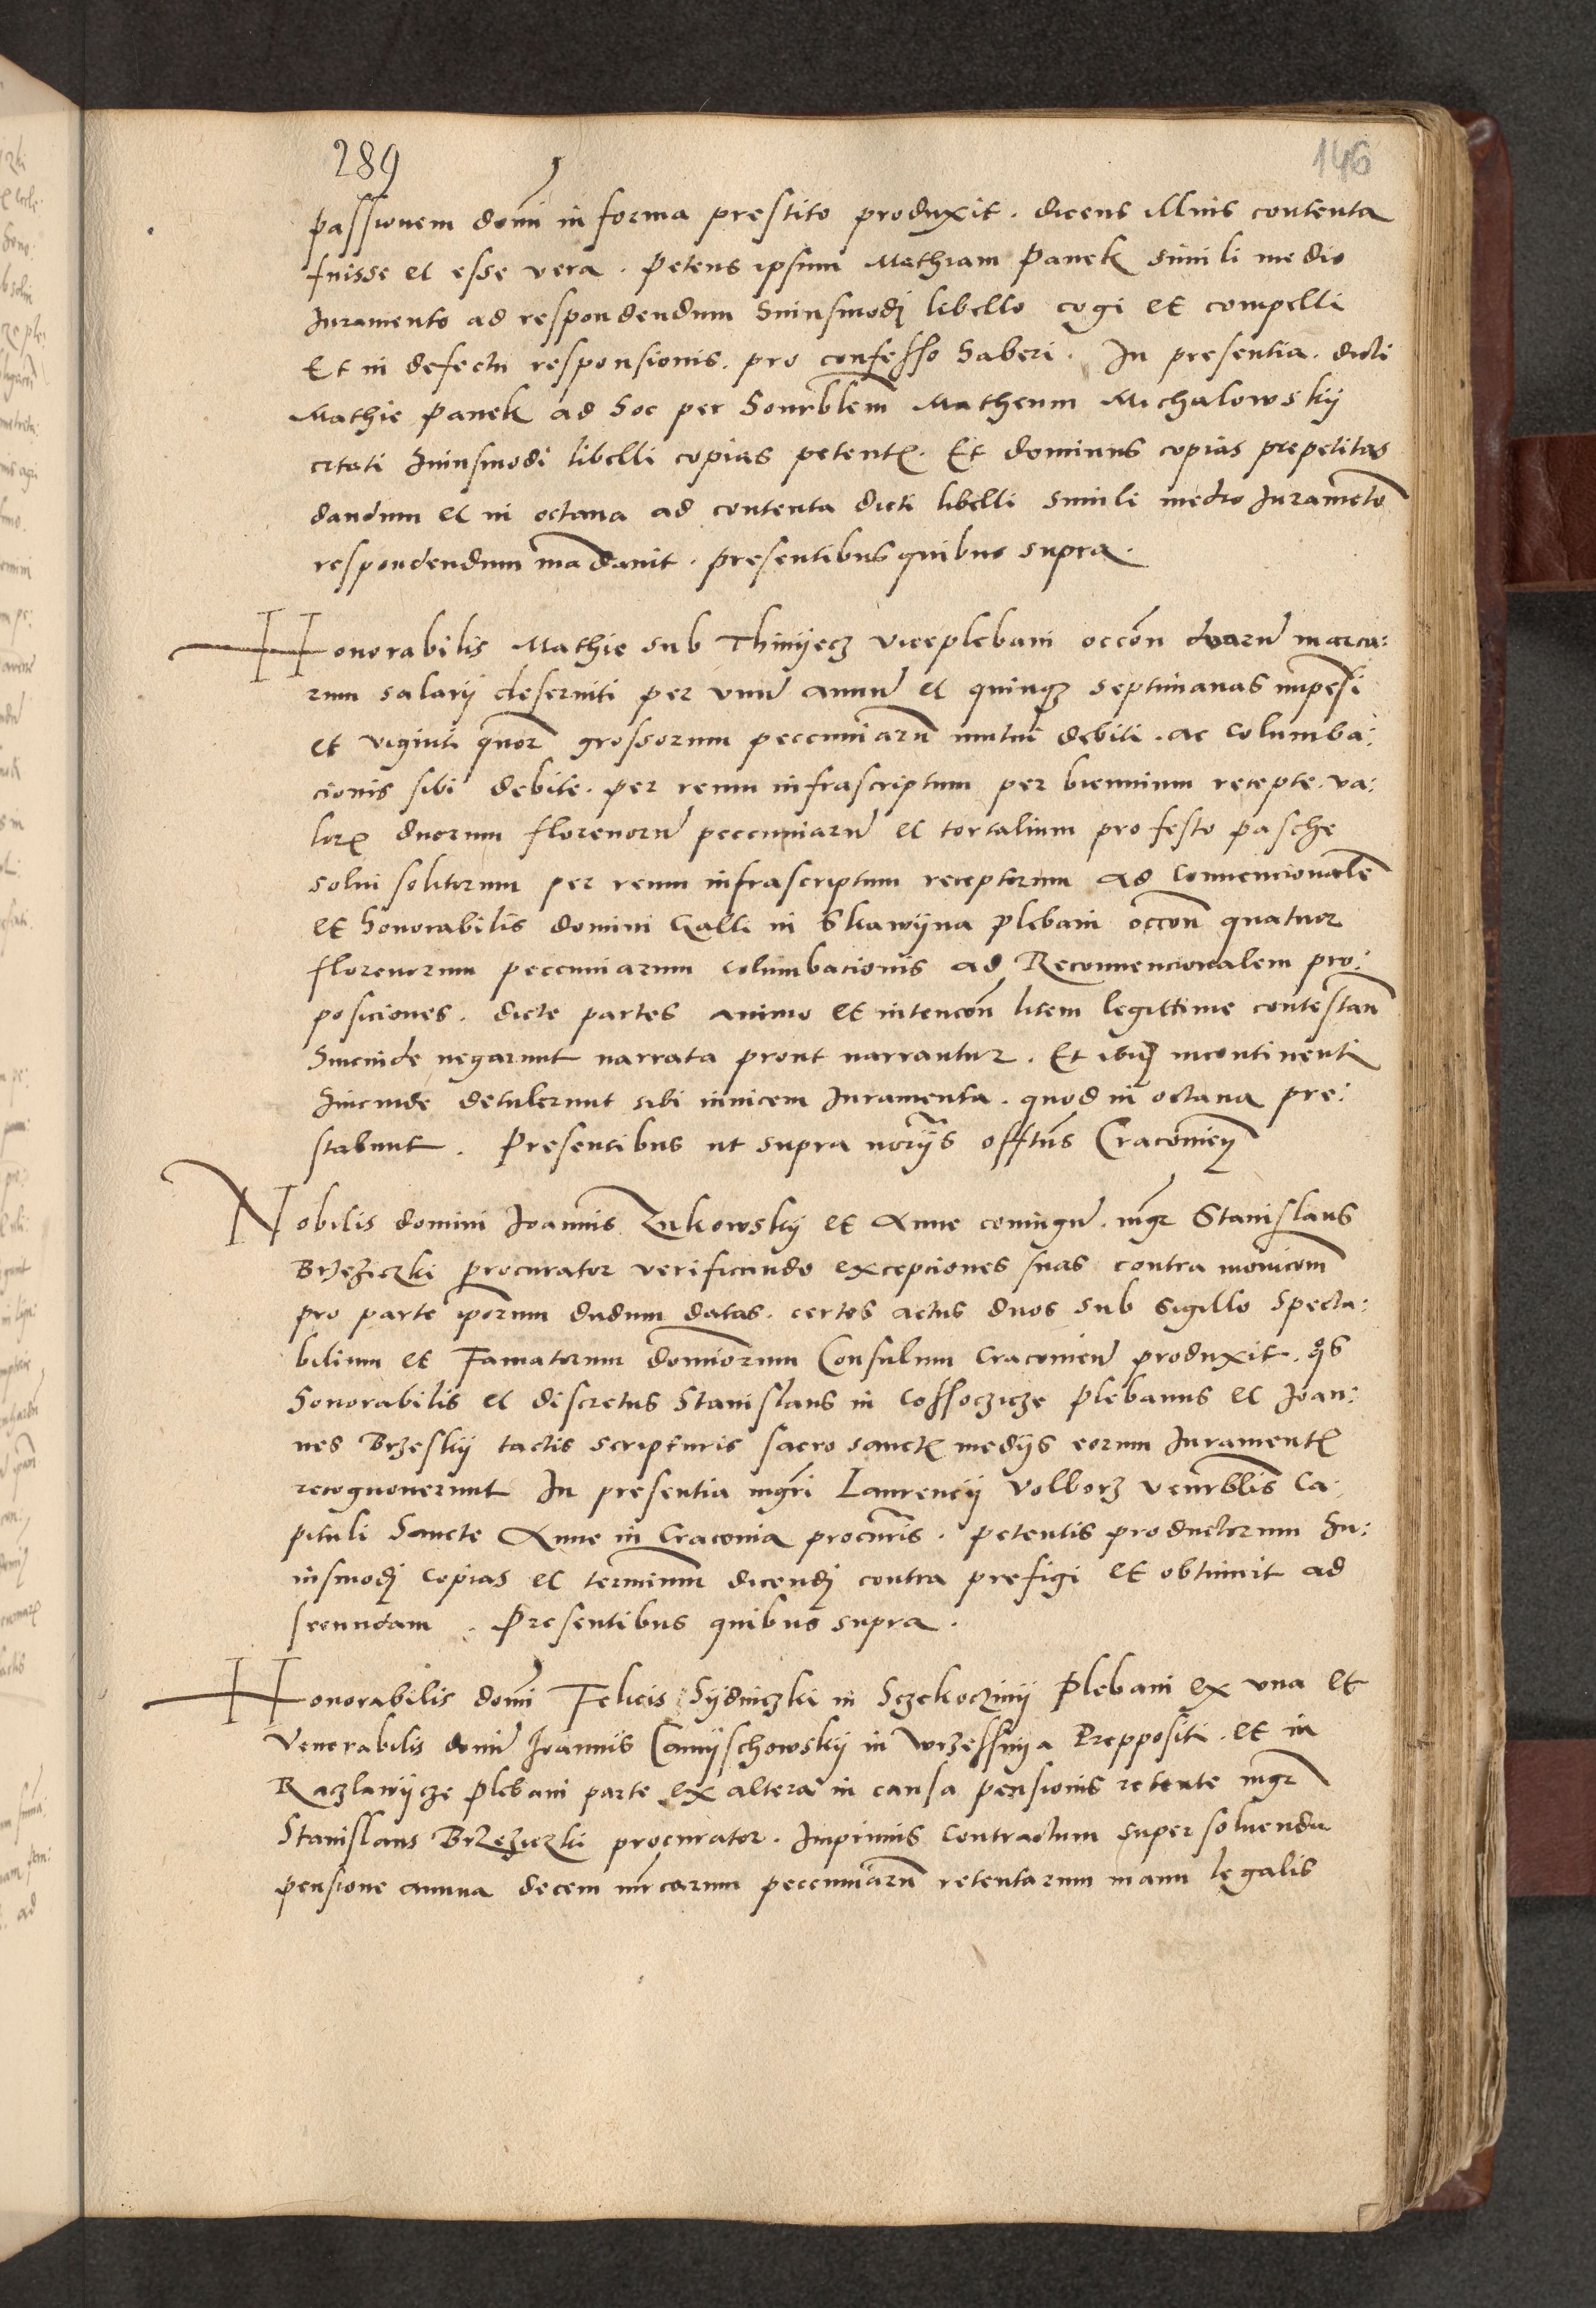 289
146
passionem domini in forma prestito produxit . dicens illius contenta
fuisse et esse vera . Petens ipsum Mathiam Panek simili medio
Juramento ad respondendum huiusmodi libello cogi et compelli
Et in defectu responsionis . pro confesso haberi . In presentia . dicti
Mathie Panek ad hoc per honorablem Matheum Michalowsky
citati huiusmodi libelli copias petentis . Et dominus copias prepetitas
dandum et in octava ad contenta dicti libelli simili medio Juramento
respondendum mandavit . presentibus quibus supra .
Honorabilis Mathie sub Thinyecz viceplebani occon duarum marca:
rum salarii deserviti per unum annum et quinque septimanas
et viginti quatuor grossorum pecuniarum mutui debiti . ac columba:
cionis sibi debite . per reum infrascriptum per biennium recepte . va:
loris duorum florenorum pecuniarum et tortalium pro festo pasche
solui solitorum per reum infrascriptum receptorum ad Convencionalem
et honorabilis domini Galli in Skawyna plebani occon quatuor
florenorum pecuniarum columbacionis ad Reconvencionalem pro:
posiciones . dicte partes animo et intencon litem legittime contestan
hincinde negarunt narrata prout narrantur . Et ibidem incontinenti
hincinde detulerunt sibi invicem Juramenta . quod in octava pre:
stabunt . Presentibus ut supra notariis Cracovien
Nobilis domini Joannis Zukowsky et Anne coniugum . mgr Stanislaus
Brzeziczki procurator verificando excepciones suas contra monicom
pro parte iporum dudum datas . certos actus duos sub sigillo specta:
bilium et Famatorum dominorum Consulum Cracovien produxit . quos
honorabilis et discretus Stanislaus in Cossoczicze plebanus et Joan:
nes Brzesky tactis scripturis sacro sanctis mediis eorum Juramentis
recognoverunt In presentia mgri Laurencii Volborz venerablis Ca:
pituli Sancte Anne in Cracovia procuris . petentis productorum hu:
iusmodi copias et terminum dicendi contra prefigi et obtinuit ad
secundam . Presentibus quibus supra .
Honorabilis domini Felicis in Sczekocziny Plebani ex una et
Venerabilis domini Joannis in Wrzessnya Prepositi . et in
Raczlawycze plebani parte ex altera in causa pensionis retente mgr
Stanislaus Brzeziczki procurator . Imprimis contractum super solvenda
pensione annua decem mrcarum pecuniarum retentarum manu legalis